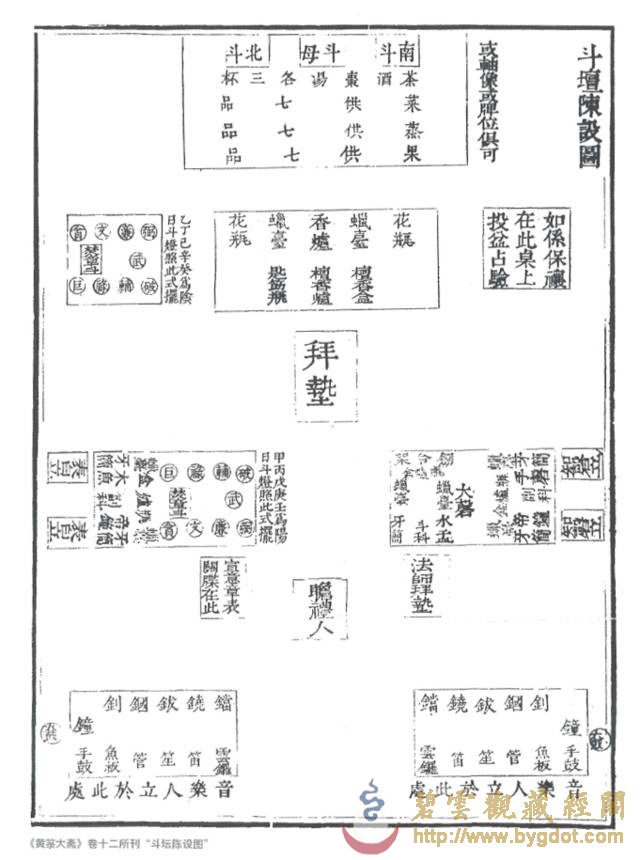 斗壇陳設圖
或軸像或牌位俱可
南斗 斗母 北斗
茶酒棗湯各三杯
菜供七品
蒸供七品
果供七品
如係保禳
在此桌上
投盆占驗
花瓶
蠟臺 檀香盒
香爐 檀香爐
蠟臺 匙筯瓶
花瓶
乙丁己辛癸為陰
日斗燈照此式擺
破
武
拜墊
甲丙戊庚壬為陽
日斗燈照此式擺
破 輔 巨
武
文
大磬
水盂
蠟臺
斗科
牙簡
木魚
法師拜墊
瞻禮人
宣意章表
關牒在此
鐺 鐃 鈸 釧
鐘
雲鑼 笛 笙 管 魚板 手鼓
音樂人立於此處
鐺 鐃 鈸 釧
鐘
雲鑼 笛 笙 管 魚板 手鼓
音樂人立於此處
碧雲觀藏經閣
http://www.bygdot.com
《黄箓大斋》卷十二所刊“斗坛陈设图”